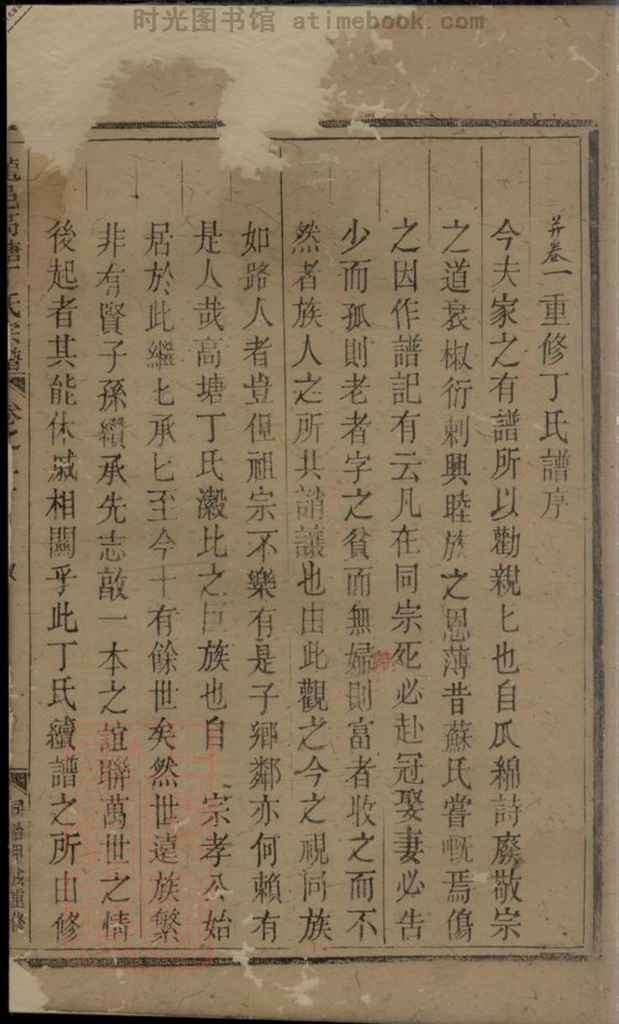 时光图书馆 atimebook.com
并卷一重修丁氏譜序
今夫家之有譜所以勸親匕也自瓜綿詩廢敬宗
之道衰椒衍刺興睦族之恩薄昔蘇氏嘗嘅焉傷
之因作譜記有云凡在同宗死必赴冠娶妻必告
少而孤則老者字之貧而無婦則富者收之而不
然者族人之所共誚讓也由此觀之今之視同族
如路人者豈但祖宗不樂有是子鄉鄰亦何賴有
是人哉高塘丁氏瀫北之巨族也自 宗孝公始
居於此繼匕承匕至今十有餘世矣然世遠族繁
非有賢子孫纘承先志敵一本之誼聯萬世之情
後起者其能休戚相關乎此丁氏續譜之所由修
高塘丁氏宗譜 卷之一
重修